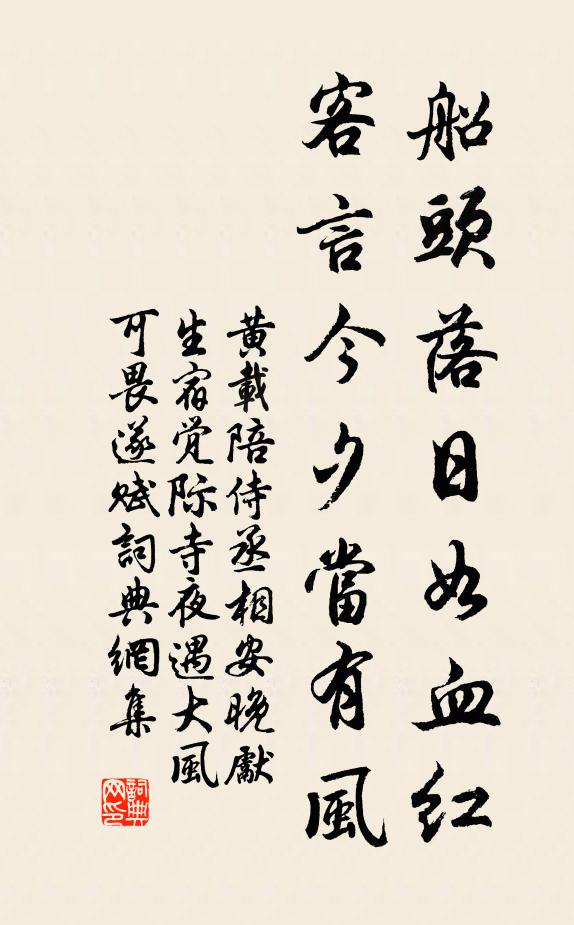 船頭落日如血紅
客言今夕當有風
黃載陪侍丞相安晚獻
生宿觉际寺夜遇大風
可畏遂赋詞典網集
詞典网印